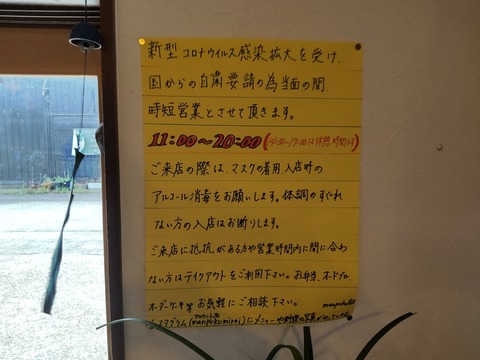 新型コロナウイルス感染拡大を受け、
国からの自粛要請の為当面の間、
時短営業とさせて頂きます。
11:00〜20:00(14:30〜17:00は休憩時間です)
ご来店の際は、マスクの着用、入店時の
アルコール消毒をお願いします。体調のすぐれ
ない方の入店はお断りします。
ご来店に抵抗がある方や営業時間内に間に合わ
ない方はテイクアウトをご利用下さい。お弁当、オードブル、
オーダーケーキ等お気軽にご相談下さい。
アカウント名
インスタグラム(manpukumirai)にメニューや料理の写真が